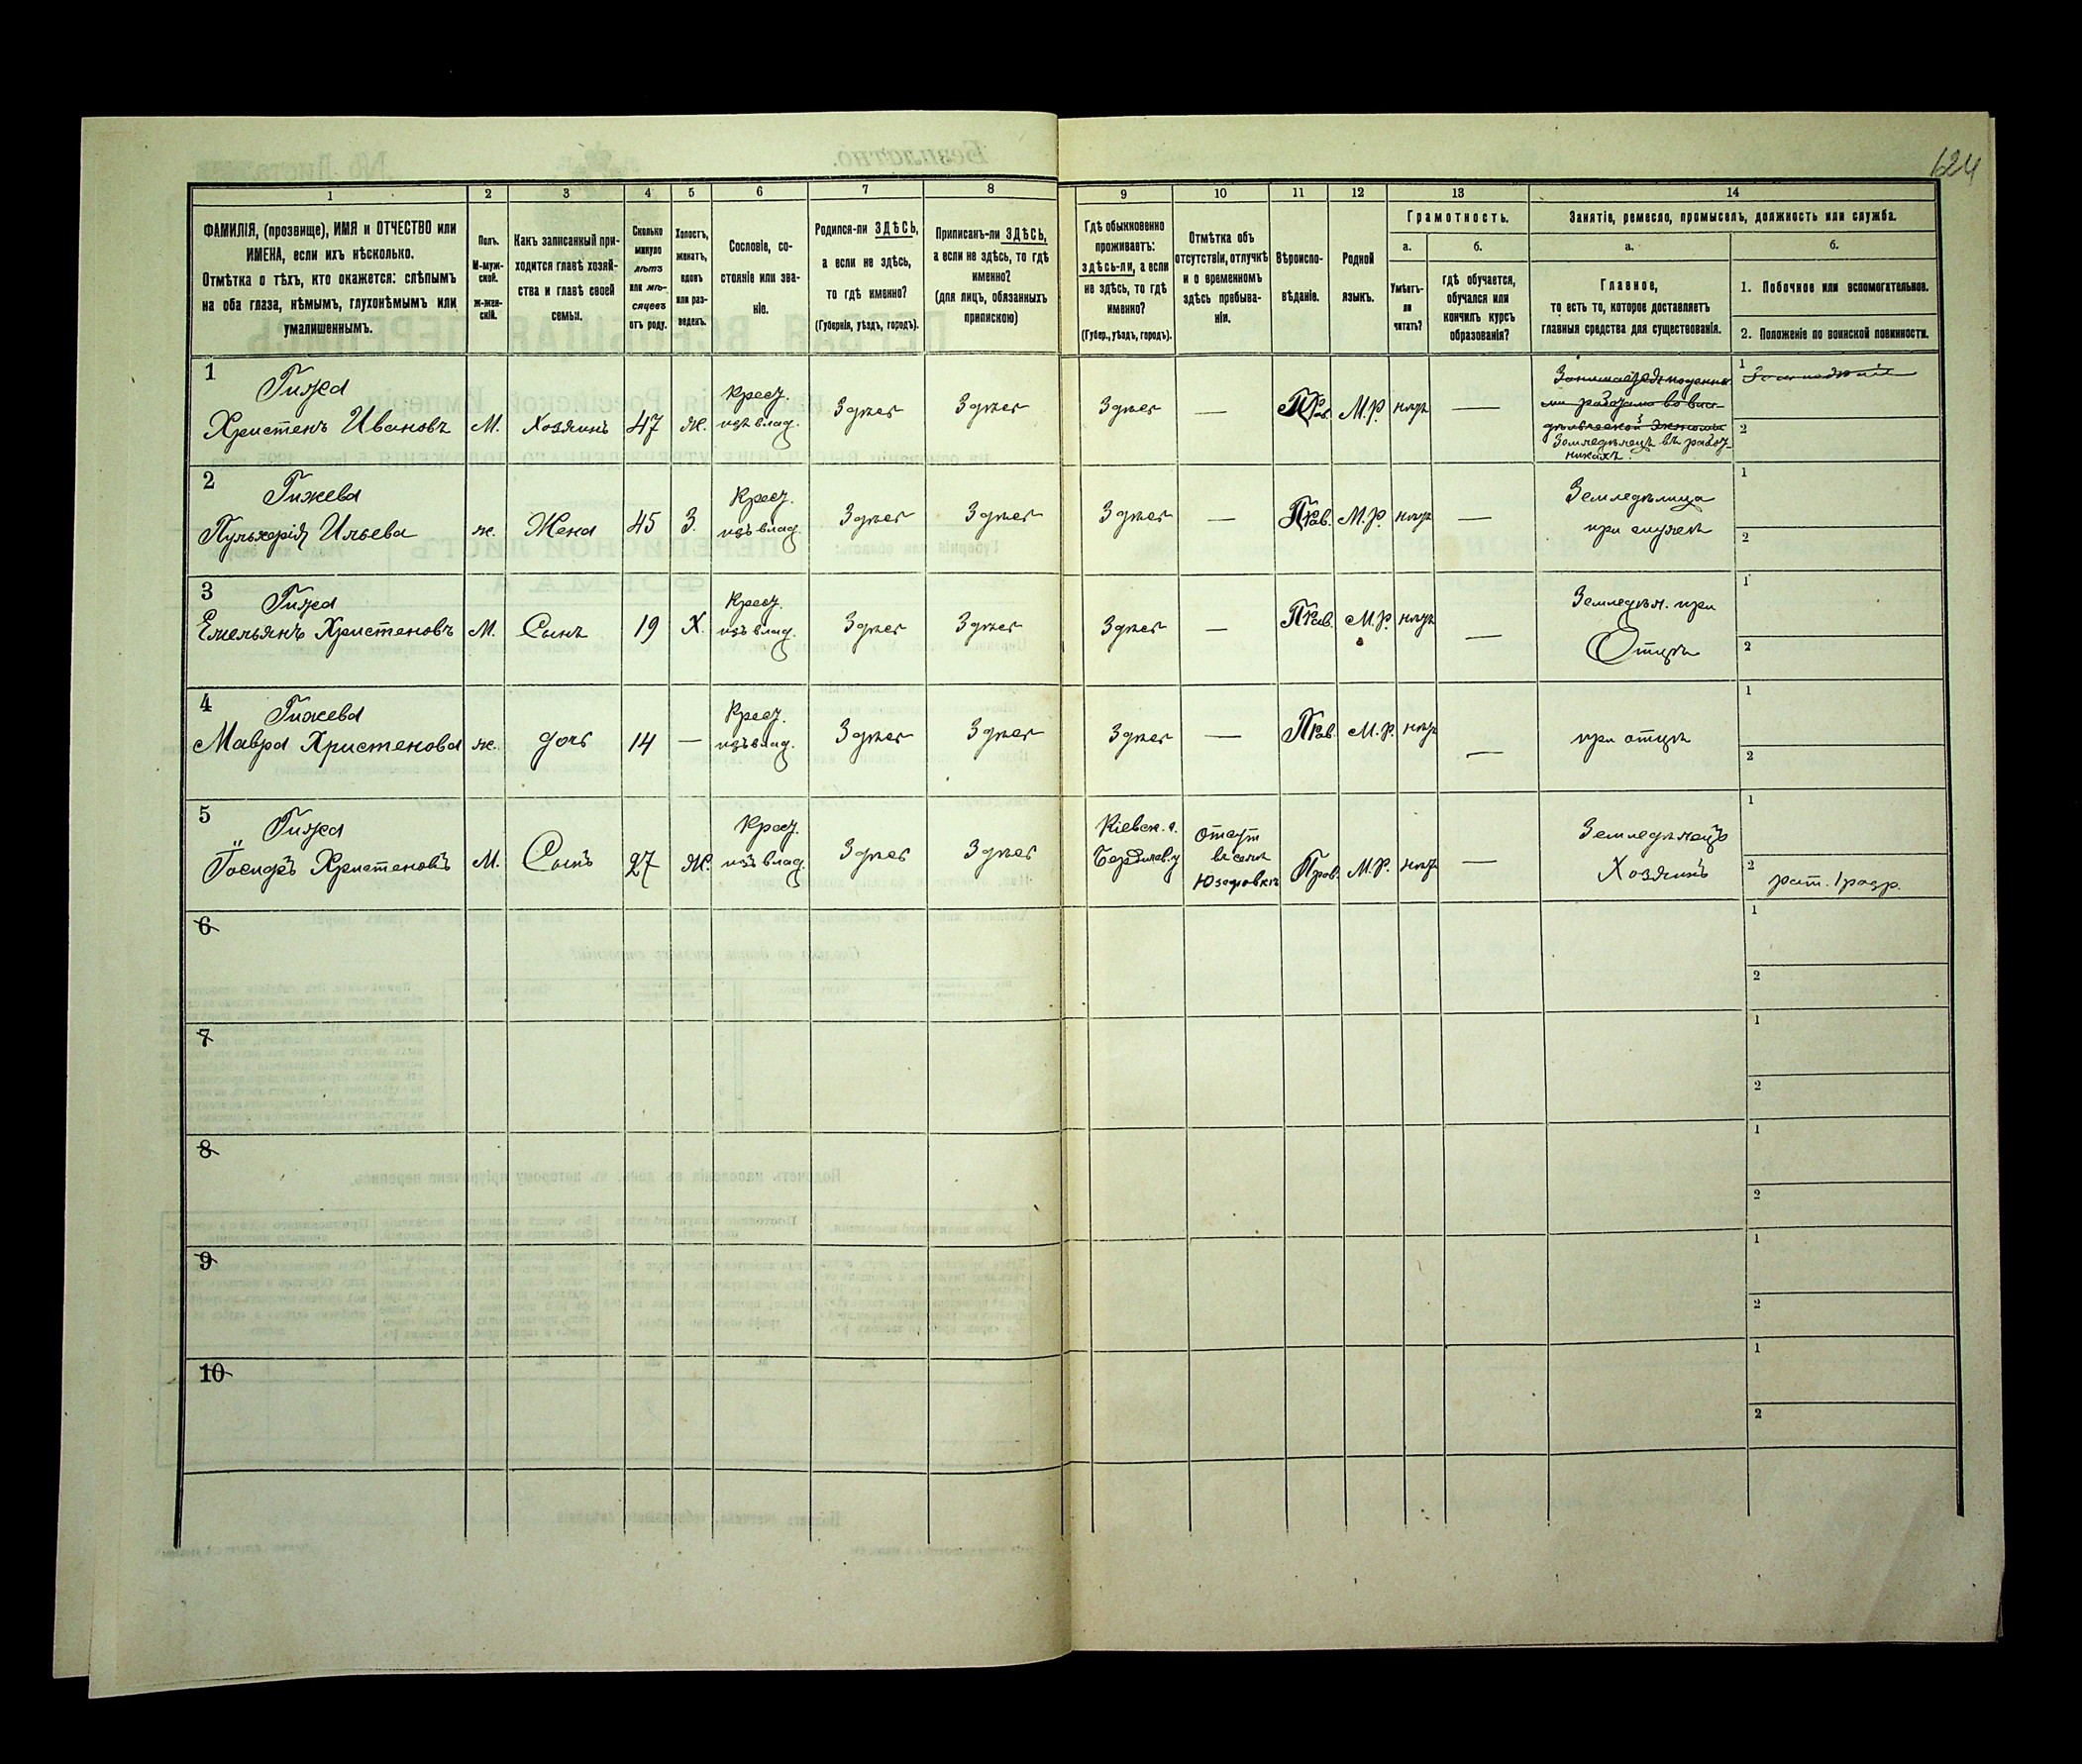 624
1
2
3
4
5
6
7
8
9
10
11
12
13
14
ФАМИЛІЯ, (прозвище), ИМЯ и ОТЧЕСТВО или
ИМЕНА, если ихъ нѣсколько.
Отмѣтка о тѣхъ, кто окажется: слѣпымъ
на оба глаза, нѣмымъ, глухонѣмымъ или
умалишеннымъ.
Полъ.
М-муж-
ской.
ж-жен-
скій.
Какъ записанный при-
ходится главѣ хозяй-
ства и главѣ своей
семьи.
Сколько
минуло
лѣтъ
или мѣ-
сяцевъ
отъ роду.
Холостъ,
женатъ,
вдовъ
или раз-
веденъ.
Сословіе, со-
стояніе или зва-
ніе.
Родился-ли ЗДѢСЬ,
а если не здѣсь,
то гдѣ именно?
(Губернія, уѣздъ, городъ).
Приписанъ-ли ЗДѢСЬ,
а если не здѣсь, то гдѣ
именно?
(для лицъ, обязанныхъ
припискою)
Гдѣ обыкновенно
проживаетъ:
здѣсь-ли, а если
не здѣсь, то гдѣ
именно?
(Губер., уѣздъ, городъ).
Отмѣтка объ
отсутствіи, отлучкѣ
и о временномъ
здѣсь пребыва-
ніи.
Вѣроиспо-
вѣданіе.
Родной
языкъ.
Грамотность.
а.
Умѣетъ-
ли
читать?
б.
гдѣ обучается,
обучался или
кончилъ курсъ
образованія?
Занятіе, ремесло, промыселъ, должность или служба.
а.
Главное,
то есть то, которое доставляетъ
главныя средства для существованія.
б.
1. Побочное или вспомогательное.
2. Положеніе по воинской повинности.
1
Гижа
Христенъ Ивановъ
М.
Хозяинъ
47
Ж.
Крест.
изъ влад.
Здѣсь
Здѣсь
Здѣсь
—
Прав.
М.Р.
нѣтъ
—
Земледѣлецъ въ работ-
никахъ.
1
2
2
Гижева
Пульхерія Ильева
ж.
Жена
45
З.
Крест.
изъ влад.
Здѣсь
Здѣсь
Здѣсь
—
Прав.
М.Р.
нѣтъ
—
Земледѣлица
при мужѣ
1
2
3
Гижа
Емельянъ Христеновъ
М.
Сынъ
19
Х.
Крест.
изъ влад.
Здѣсь
Здѣсь
Здѣсь
—
Прав.
М.Р.
нѣтъ
—
Земледѣл. при
Отцѣ
1
2
4
Гижева
Мавра Христенова
ж.
дочь
14
—
Крест.
изъ влад.
Здѣсь
Здѣсь
Здѣсь
—
Прав.
М.Р.
нѣтъ
—
при отцѣ
1
2
5
Гижа
Христеновъ
М.
Сынъ
27
Ж.
Крест.
изъ влад.
Здѣсь
Здѣсь
Кіевск. г.
Бердичев. у
отсут
въ селѣ
Юзефовкѣ
Прав.
М.Р.
нѣтъ
—
Земледѣлецъ
Хозяинъ
1
2
рат. 1 разр.
6
1
2
7
1
2
8
1
2
9
1
2
10
1
2